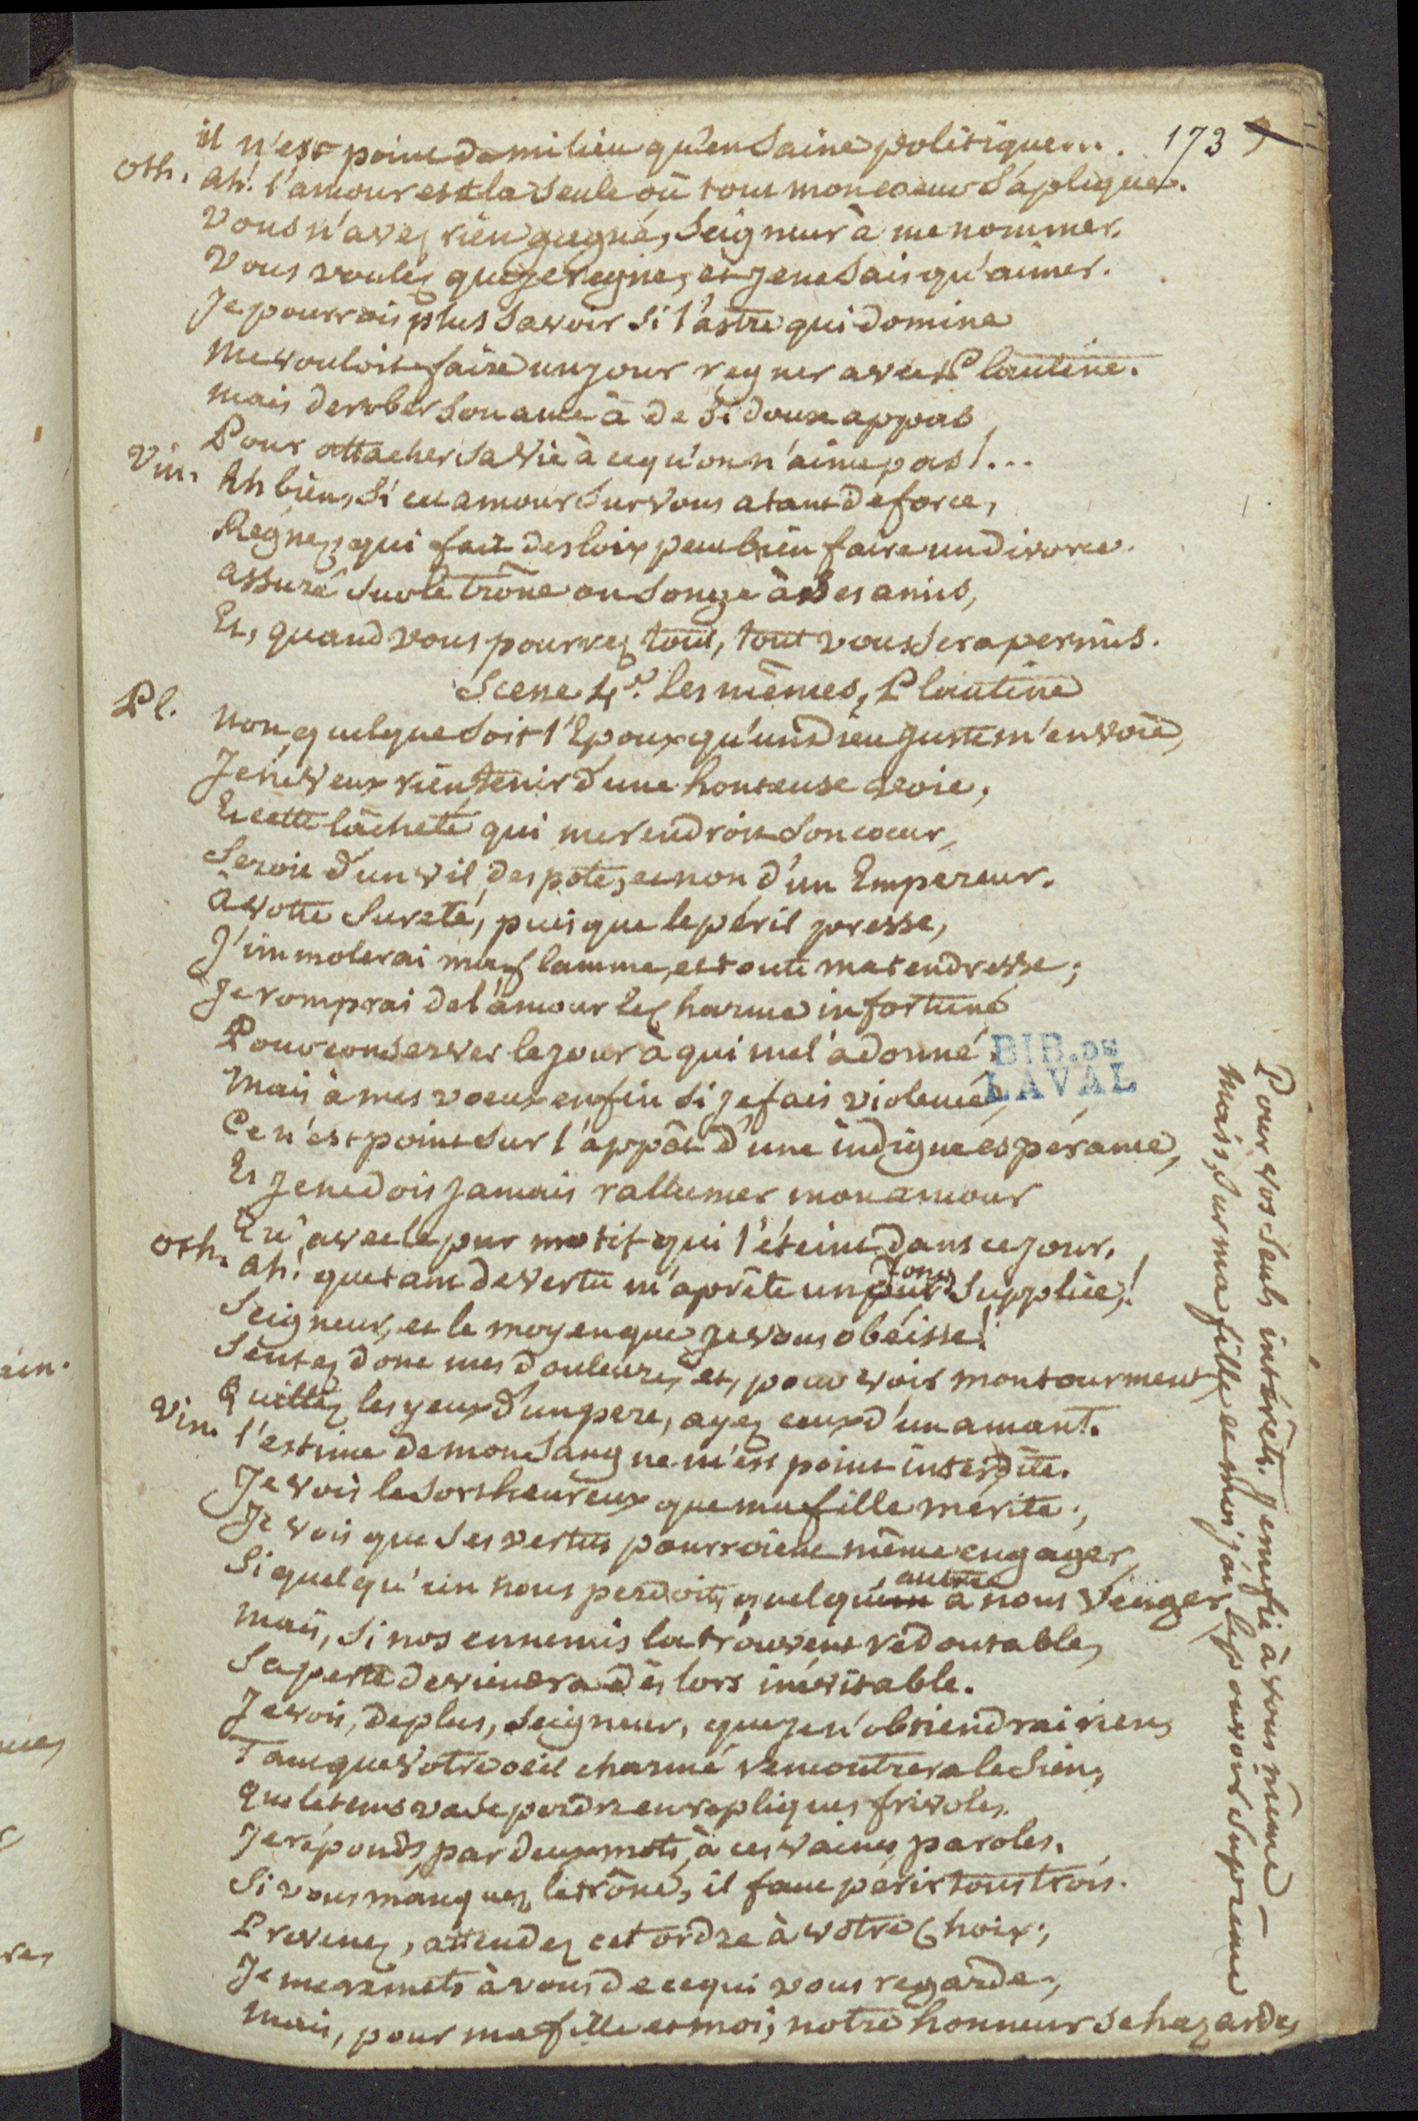 173
il n'est point de milieu qu'en saine politique....
Oth. ah! l'amour est la seule où tout mon coeur s'aplique.
Vous n'avez rien gagné, Seigneur à me nommer.
Vous voulez que je regne, et je ne sais qu'aimer.
Je pourrois plus savoir si l'astre qui domine
me vouloit faire un jour regner avec Plautine.
mais derober son ame à de si doux appas
Pour attacher sa vie à ce qu'on n'aime pas!...
Vin. Eh bien, si cet amour sur vous a tant de force,
Regnez, qui fait des loix peut bien faire un divorce.
assuré sur le trône on songe à ses amis,
Et, quand vous pourrez tout, tout vous sera permis.
Scene 4e. Les mêmes, Plautine
Pl. Non, quelque soit l'Epoux qu'un dieu juste m'envoie,
Je ne veux rien tenir d'une honteuse voie,
Et cette lâcheté qui me rendroit son coeur,
Seroit d'un vil despote, et non d'un Empereur.
à votre sureté, puisque le péril presse,
J'immolerai ma flamme, et toute ma tendresse;
Je romprai de l'amour le charme infortuné
Pour conserver le jour à qui me l'a donné.
BIB. DE
LAVAL
Mais à mes voeux enfin si je fais violence,
Ce n'est point sur l'appôt d'une indigne espérance,
Et je ne dois jamais rallumer mon amour
Qu'avec le pur motif qui l'éteint dans ce jour.
Oth. ah! que tant de vertu m'aprête un pur long supplice!
Seigneur, et le moyen que je vous obéisse!
Sentez donc mes douleurs, et, pour voir mon tourment,
Quittez les yeux d'un pere, ayez ceux d'un amant.
Vin. l'estime de mon sang ne m'est point interdite.
Je vois le sort heureux que ma fille mérite;
Je vois que ses vertus pourroient même engager,
Si quelqu'un nous perdoit, quelqu'un autre à nous venger,
Mais, si nos ennemis la trouvent redoutable,
Sa perte deviendra dès lors inévitable.
Je vois, de plus, Seigneur, que je n'obtiendrai rien,
Tant que votre oeil charmé rencontrera le sien,
Que le tems va se perdre en repliques frivoles.
Je réponds, par deux mots, à ces vaines paroles.
Si vous manquez le trône, il faut périr tous trois.
Prevenez, attendez cet ordre à votre choix;
Je me remets à vous de ce qui vous regarde,
Mais, pour ma fille et moi, notre honneur se hazarde,
Pour vos seuls intérêts, je me fie à vous même -
Mais, sur ma fille et moi j'ai le pouvoir suprême